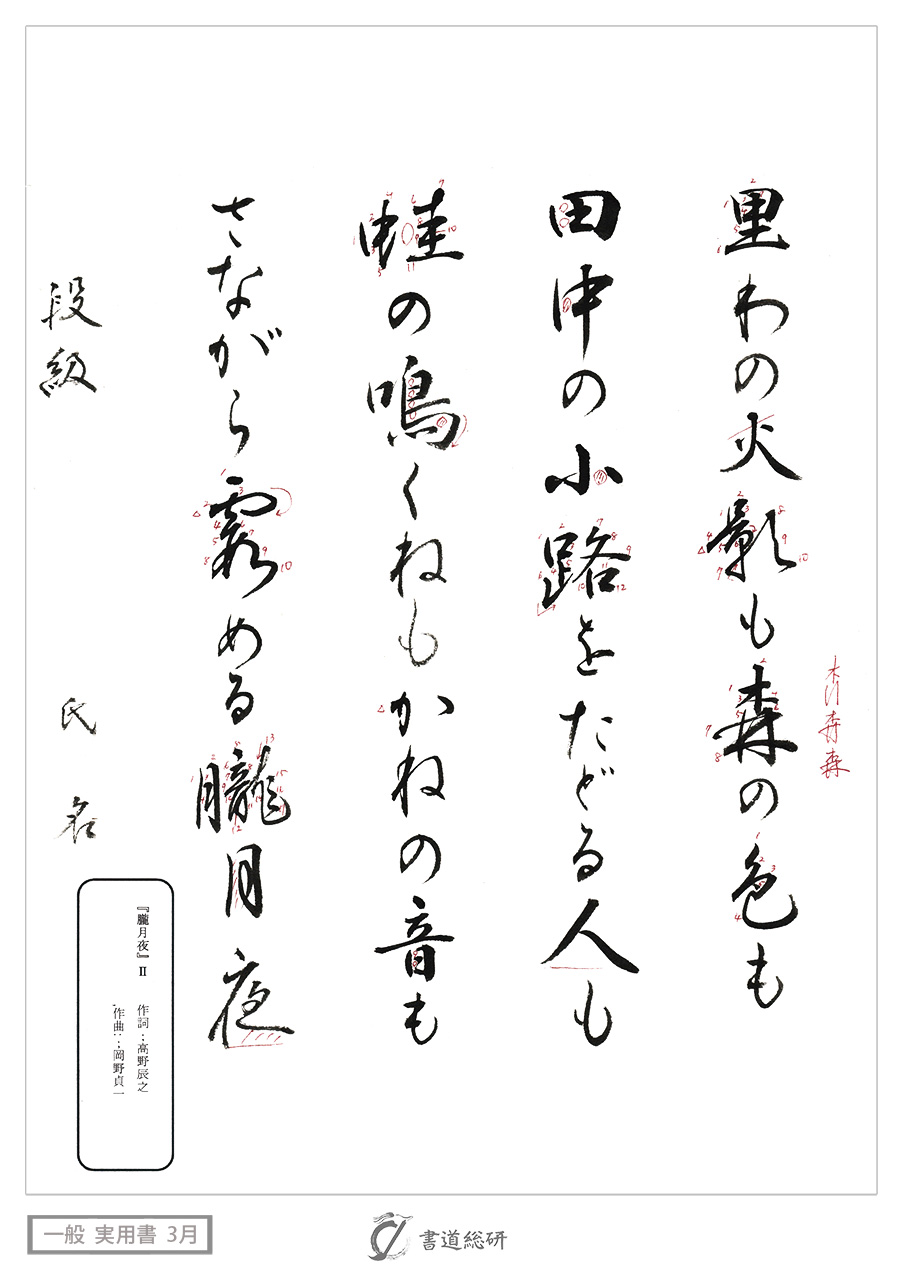 里わの火影も森の色も
田中の小路をたどる人も
蛙の鳴くねもかねの音も
さながら霞める朧月夜
段級 氏名
『朧月夜』Ⅱ 作詞：高野辰之
作曲：：岡野貞一
一般 実用書 3月
書道総研